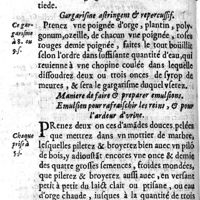 tiede.
Gargarisme astringent & repercussif.
Ce gar-
garisme
à 8. ou
9.
Prenez vne poignée d'orge, plantin, poly-
gonum, ozeille, de chacun vne poignée, roses
rouges demie poignée, faites le tout boüillir
selon l'ordre dans suffisante quantité d'eau, qui
tenienne à cinq onces coulée dans laquelle
dissoudrez deux ou trois onces de syrop de
meures, & sera le gargarisme duquel vserez.
Maniere de faire & preparer emulsions.
Emulsion pour rafraischir les reins, & pour
l'ardeur d'vrine.
Chaque
prise à
5
Prenez deux onces d'amādes douces pelées,
que mettrez dans vn mortier de marbre,
lesquelles pilerez & broyerez bien auec vn pilō
de bois, y adioustāt encores vne once & demie
des quatre grosses semences, froides mondées,
que pilerez & broyerez aussi auec, en versant
petit à petit du laict clair ou ptisane, ou eau
d'orge chaude, iusques à la quantité de trois